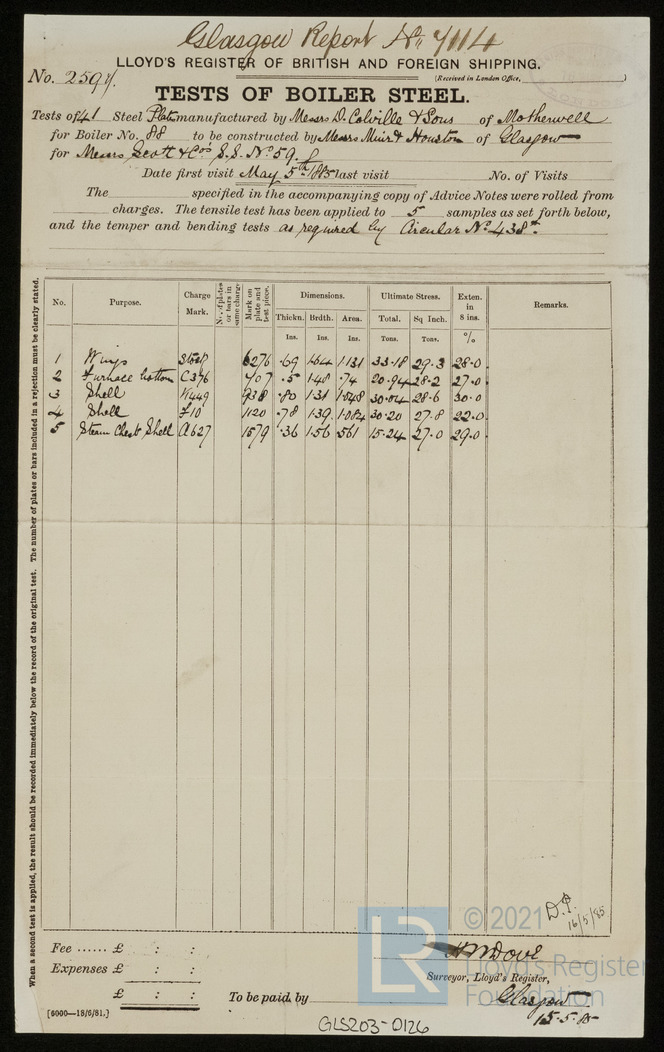 Glasgow Report No. 7114
LLOYD'S REGISTER OF BRITISH AND FOREIGN SHIPPING.
No. 2594. (Received in London Office,
TESTS OF BOILER STEEL.
Tests of 41 Steel Plates manufactured by Messrs D. Colville & Sons of Motherwell
for Boiler No. 88 to be constructed by Messrs Muir & Houston of Glasgow
for Messrs Scott & Cos S.S. No 59.
Date first visit May 5th 1885 last visit No. of Visits
The specified in the accompanying copy of Advice Notes were rolled from
charges. The tensile test has been applied to 5 samples as set forth below,
and the temper and bending tests as required by Circular No 438.
No. Purpose. Charge Mark. No. of plates or bars in same charge. Mark on plate and test piece. Dimensions. Ultimate Stress. Exten. in 8 ins. Remarks.
Thickn. Brdth. Area. Total. Sq Inch.
Ins. Ins. Ins. Tons. Tons. %
1 Wings 6276 .69 1.64 1.131 33.18 29.3 28.0
2 Furnace bottom C376 707 .5 1.48 .74 20.94 28.2 27.0
3 Shell W449 938 .80 1.31 1.048 30.04 28.6 30.0
4 Shell F10 1120 .78 1.39 1.084 30.20 27.8 22.0
5 Steam Chest Shell A627 1579 .36 1.56 .561 15.24 27.0 29.0
When a second test is applied, the result should be recorded immediately below the record of the original test. The number of plates or bars included in a rejection must be clearly stated.
D.P.
16/5/85
Fee ...... £ : :
Expenses £ : :
£ : :
H M Dove
Surveyor, Lloyd's Register,
To be paid by Glasgow
15.5.85
[6000—18/6/81.]
GLS203-0126
© 2021
LR
Lloyd's Register
Foundation